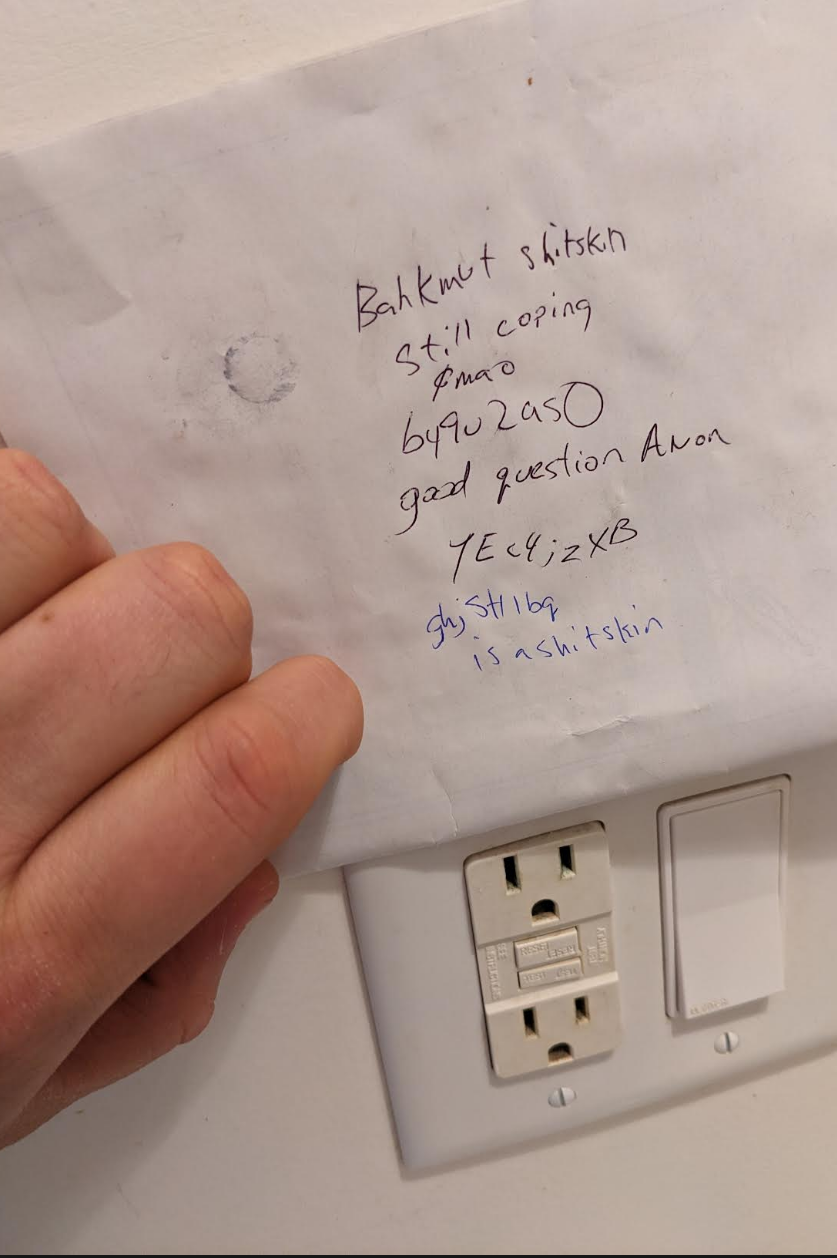 Bahkmut shitskin
still coping
lmao
by9u2as0
good question Anon
YEc4jzXB
ghjSt11bq
is a shitskin